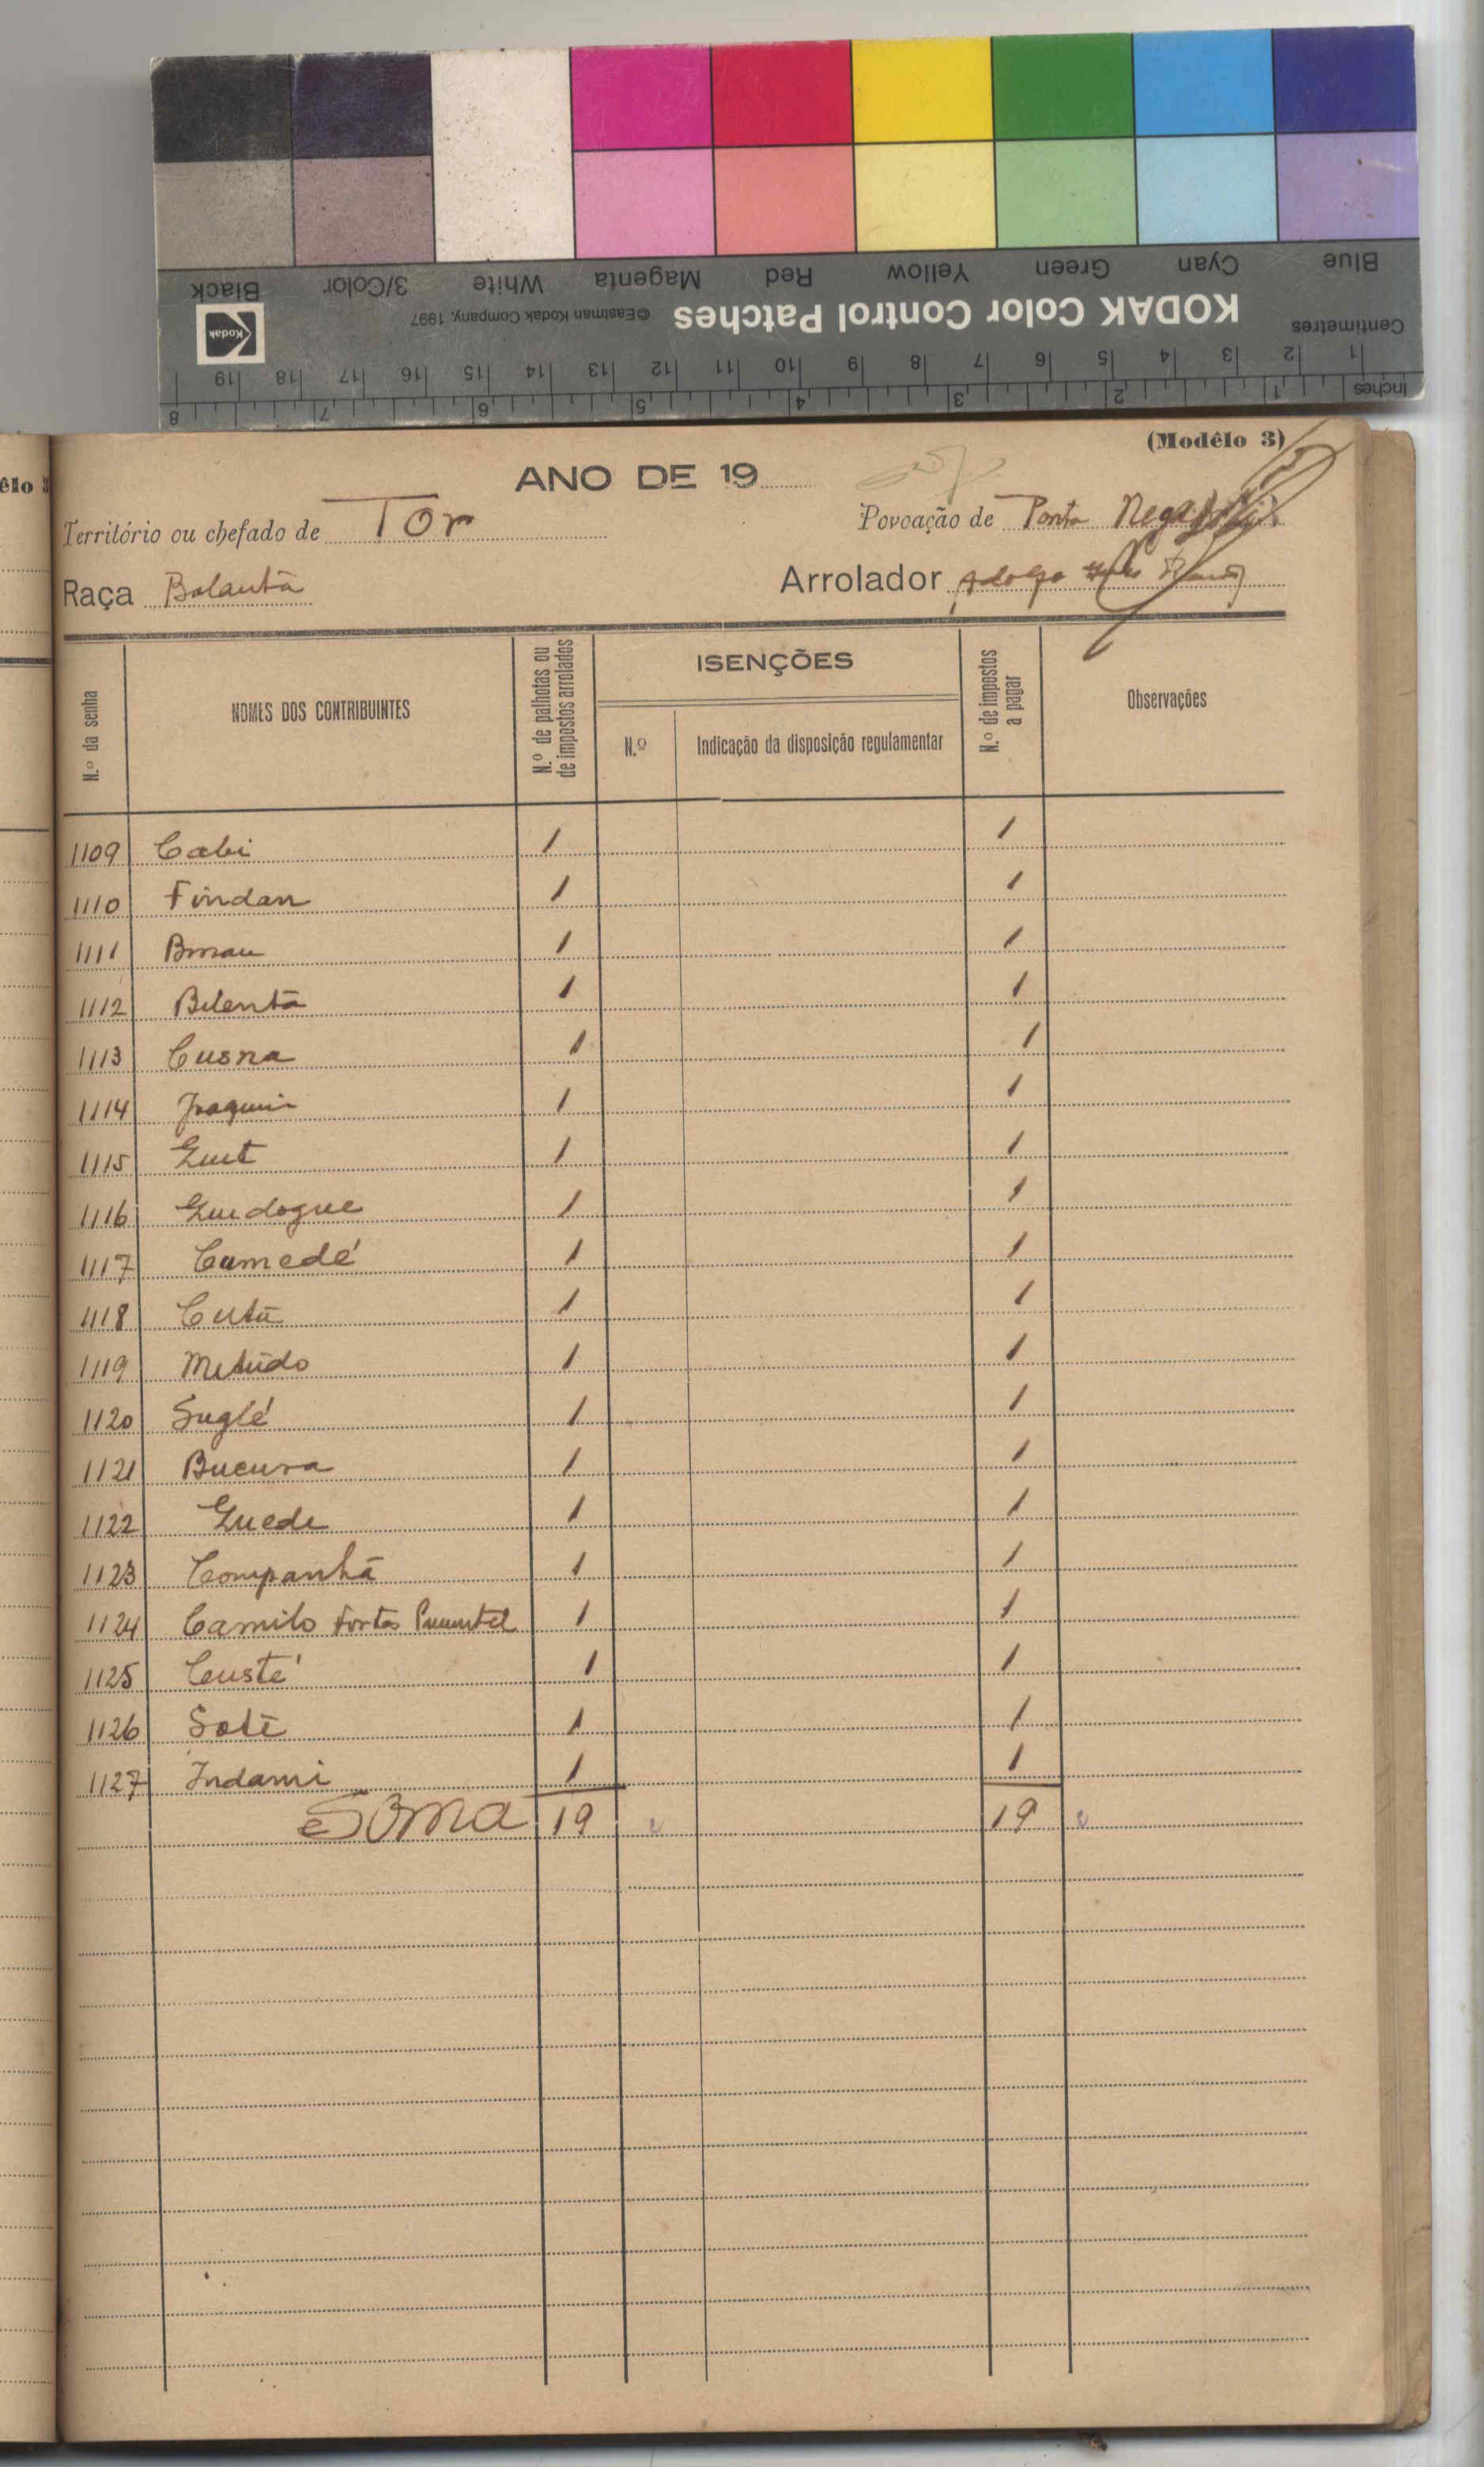 Blue Cyan Green Yellow Red Magenta White 3/Color Black
Centimetres KODAK Color Control Patches ©Eastman Kodak Company, 1997 Kodak
1 2 3 4 5 6 7 8 9 10 11 12 13 14 15 16 17 18 19
Inches 1 2 3 4 5 6 7 8
êlo 3
(Modêlo 3)
ANO DE 19
Território ou chefado de Tor
Povoação de Ponta
Raça Balanta
Arrolador Adolfo
N.º da senha
NOMES DOS CONTRIBUINTES
N.º de palhotas ou de impostos arrolados
ISENÇÕES
N.º
Indicação da disposição regulamentar
N.º de impostos a pagar
Observações
1109 Cabi 1 1
1110 Findan 1 1
1111 1 1
1112 Bilentã 1 1
1113 Cusna 1 1
1114 Joaquim 1 1
1115 Guit 1 1
1116 Guidogue 1 1
1117 Camedé 1 1
1118 Cutu 1 1
1119 Metudo 1 1
1120 Suglé 1 1
1121 Bucura 1 1
1122 Guede 1 1
1123 Companhã 1 1
1124 Camilo Fortes Pimentel 1 1
1125 Custé 1 1
1126 Sate 1 1
1127 Indami 1 1
Soma 19 19